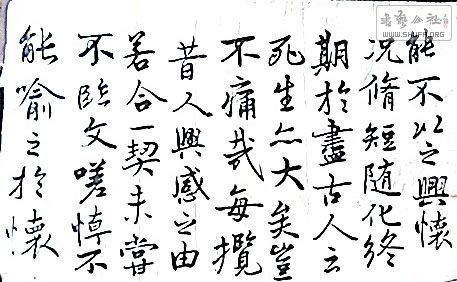 能不以之興懷
况脩短隨化終
期於盡古人云
死生亦大矣豈
不痛哉每攬
昔人興感之由
若合一契未嘗
不臨文嗟悼不
能喻之於懷
WWW.SHUFA.ORG